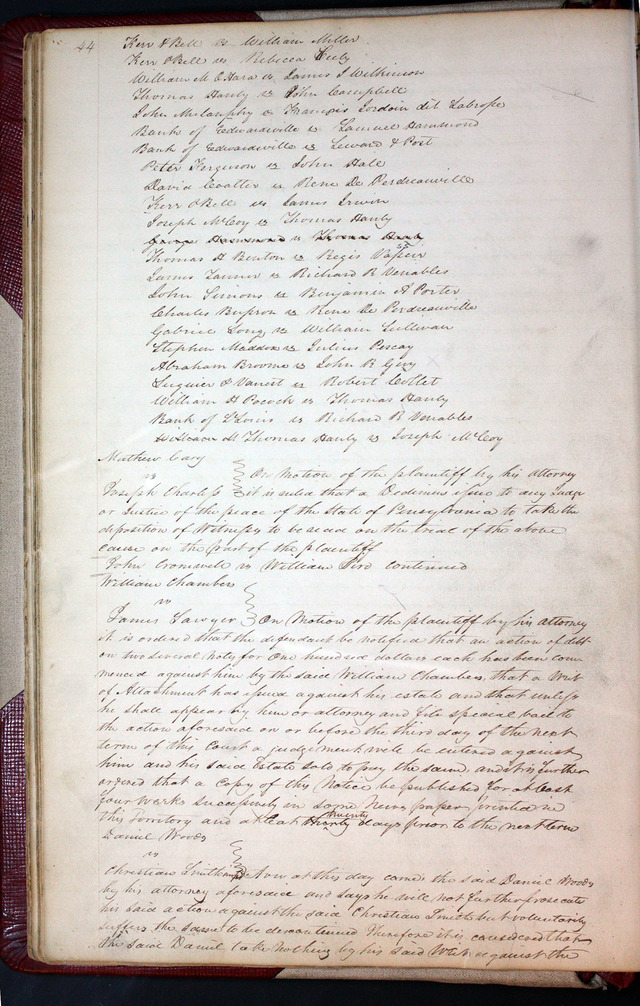 44
Kerr & Bell vs William Miller
Kerr & Bell vs Rebecca
William M OHara vs James S Wilkinson
Thomas Hanly vs John Campbell
John Mulanphy vs François Jordoin dit Labrose
Bank of Edwardsville vs Samuel Hammond
Bank of Edwardsville vs Seward & Post
Peter Ferguson vs John Hale
David Coalter vs Rene De Perdreauville
Kerr & Bell vs James Irwin
Joseph McCoy vs Thomas Hanly
George Hammond vs Thomas Hanly
Thomas H Benton vs Regis Vasseur
James Tanner vs Richard B Venables
John Simons vs Benjamin A Porter
Charles vs Rene De Perdreauville
Gabriel Long vs William Sullivan
Stephen Maddox vs Julius Pescay
Abraham Broome vs John B Guy
& Vanest vs Robert Collet
William H Pocock vs Thomas Hanly
Bank of St Louis vs Richard B Venables
Thomas Hanly vs Joseph McCoy
Mathew Cary
vs
On Motion of the plaintiff by his attorney
Joseph Charless it is ruled that a Dedimus issue to any Judge
or Justice of the peace of the State of Pensylvania to take the
deposition of Witnesses to be read on the trial of the above
cause on the part of the plaintiff
John Cromwell vs William continued
William Chambers
vs
James Sawyer On Motion of the plaintiff by his attorney
it is ordered that the defendant be notified that an action of debt
on two several notes for one hundred dollars each has been com
menced against him by the said William Chambers, that a Writ
of Attachment has issued against his estate and that unless
he shall appear by him or attorney and file special bail to
the action aforesaid on or before the third day of the next
term of this Court a judgement will be entered against
him and his said Estate sold to pay the same, and it is further
ordered that a Copy of this Notice be published for at least
four weeks successively in some News paper printed in
this Territory and at least twenty days prior to the next term
Daniel Woods
vs
Christian Smith Now at this day came the said Daniel Woods
by his attorney aforesaid and says he will not further prosecute
his said action against the said Christian Smith but voluntarily
suffers the same to be discontinued Therefore it is considered that
the said Daniel take nothing by his said Writ against the